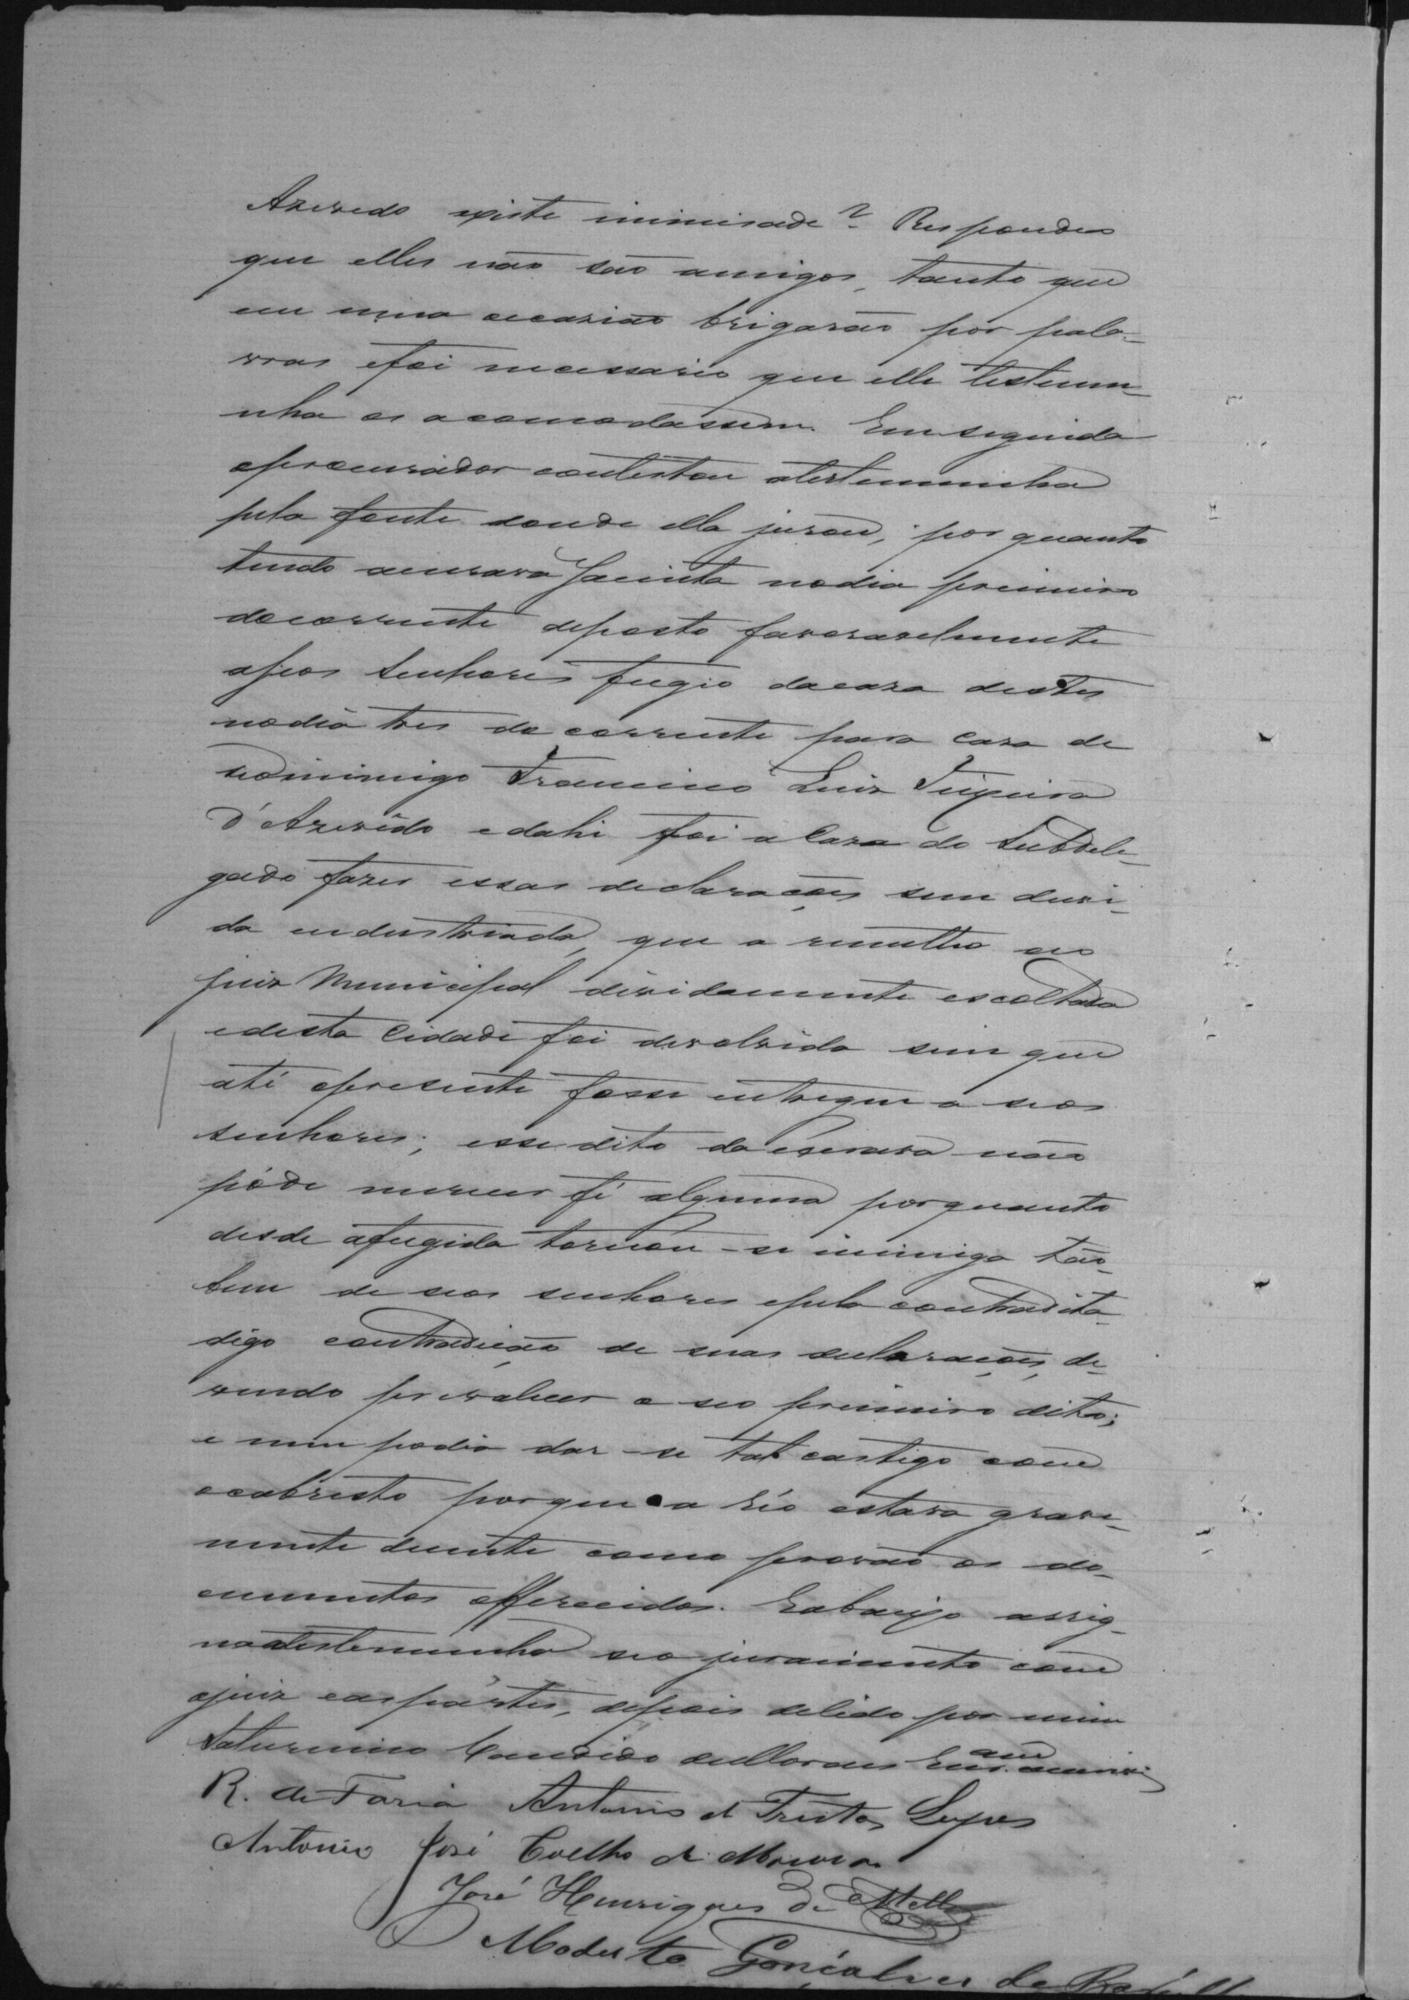 Azevedo existe inimisade? Respondeo
que elles não são amigos, tanto que
em uma occasião brigarão por pala-
vras e foi necessario que elle testemu-
nha os acomodassem. Em seguida
o procurador contestou a testemunha
pela fonte donde ella jurou, por quanto
tendo a escrava Jacinta no dia primeiro
do corrente deposto favoravelmente
a seos senhores fugio da caza destes
no dia tres do corrente para caza de
seo inimigo Francino Luiz Teixeira
d'Azevêdo e dahi foi a Caza do Subdele-
gado fazer essas declarações sem duvi-
da industriada, que a remetteo ao
juiz Municipal devidamente escoltada
e desta Cidade foi devolvida sem que
até o presente fosse entregue a seos
senhores; esse dito da escrava não
póde merecer fé alguma porquanto
desde a fugida tornou-se inimiga tão-
bem de seos senhores e pela contradita
digo contradicção de suas declarações, de-
vendo prevalecer o seo primeiro dito;
e nem podia dar-se tal castigo com
o cabresto porque a ré estava grave-
mente doente como provão os do-
cumentos offerecidos. E abaixo assig-
na a testemunha seo juramento com
o juiz e as partes, depois de lido por mim
Saturnino Candido
R. de Faria Antonio de Freitas Lopes
Antonio José Coelho de Moura
José Henriques de Mello
Modesto Gonçalves de